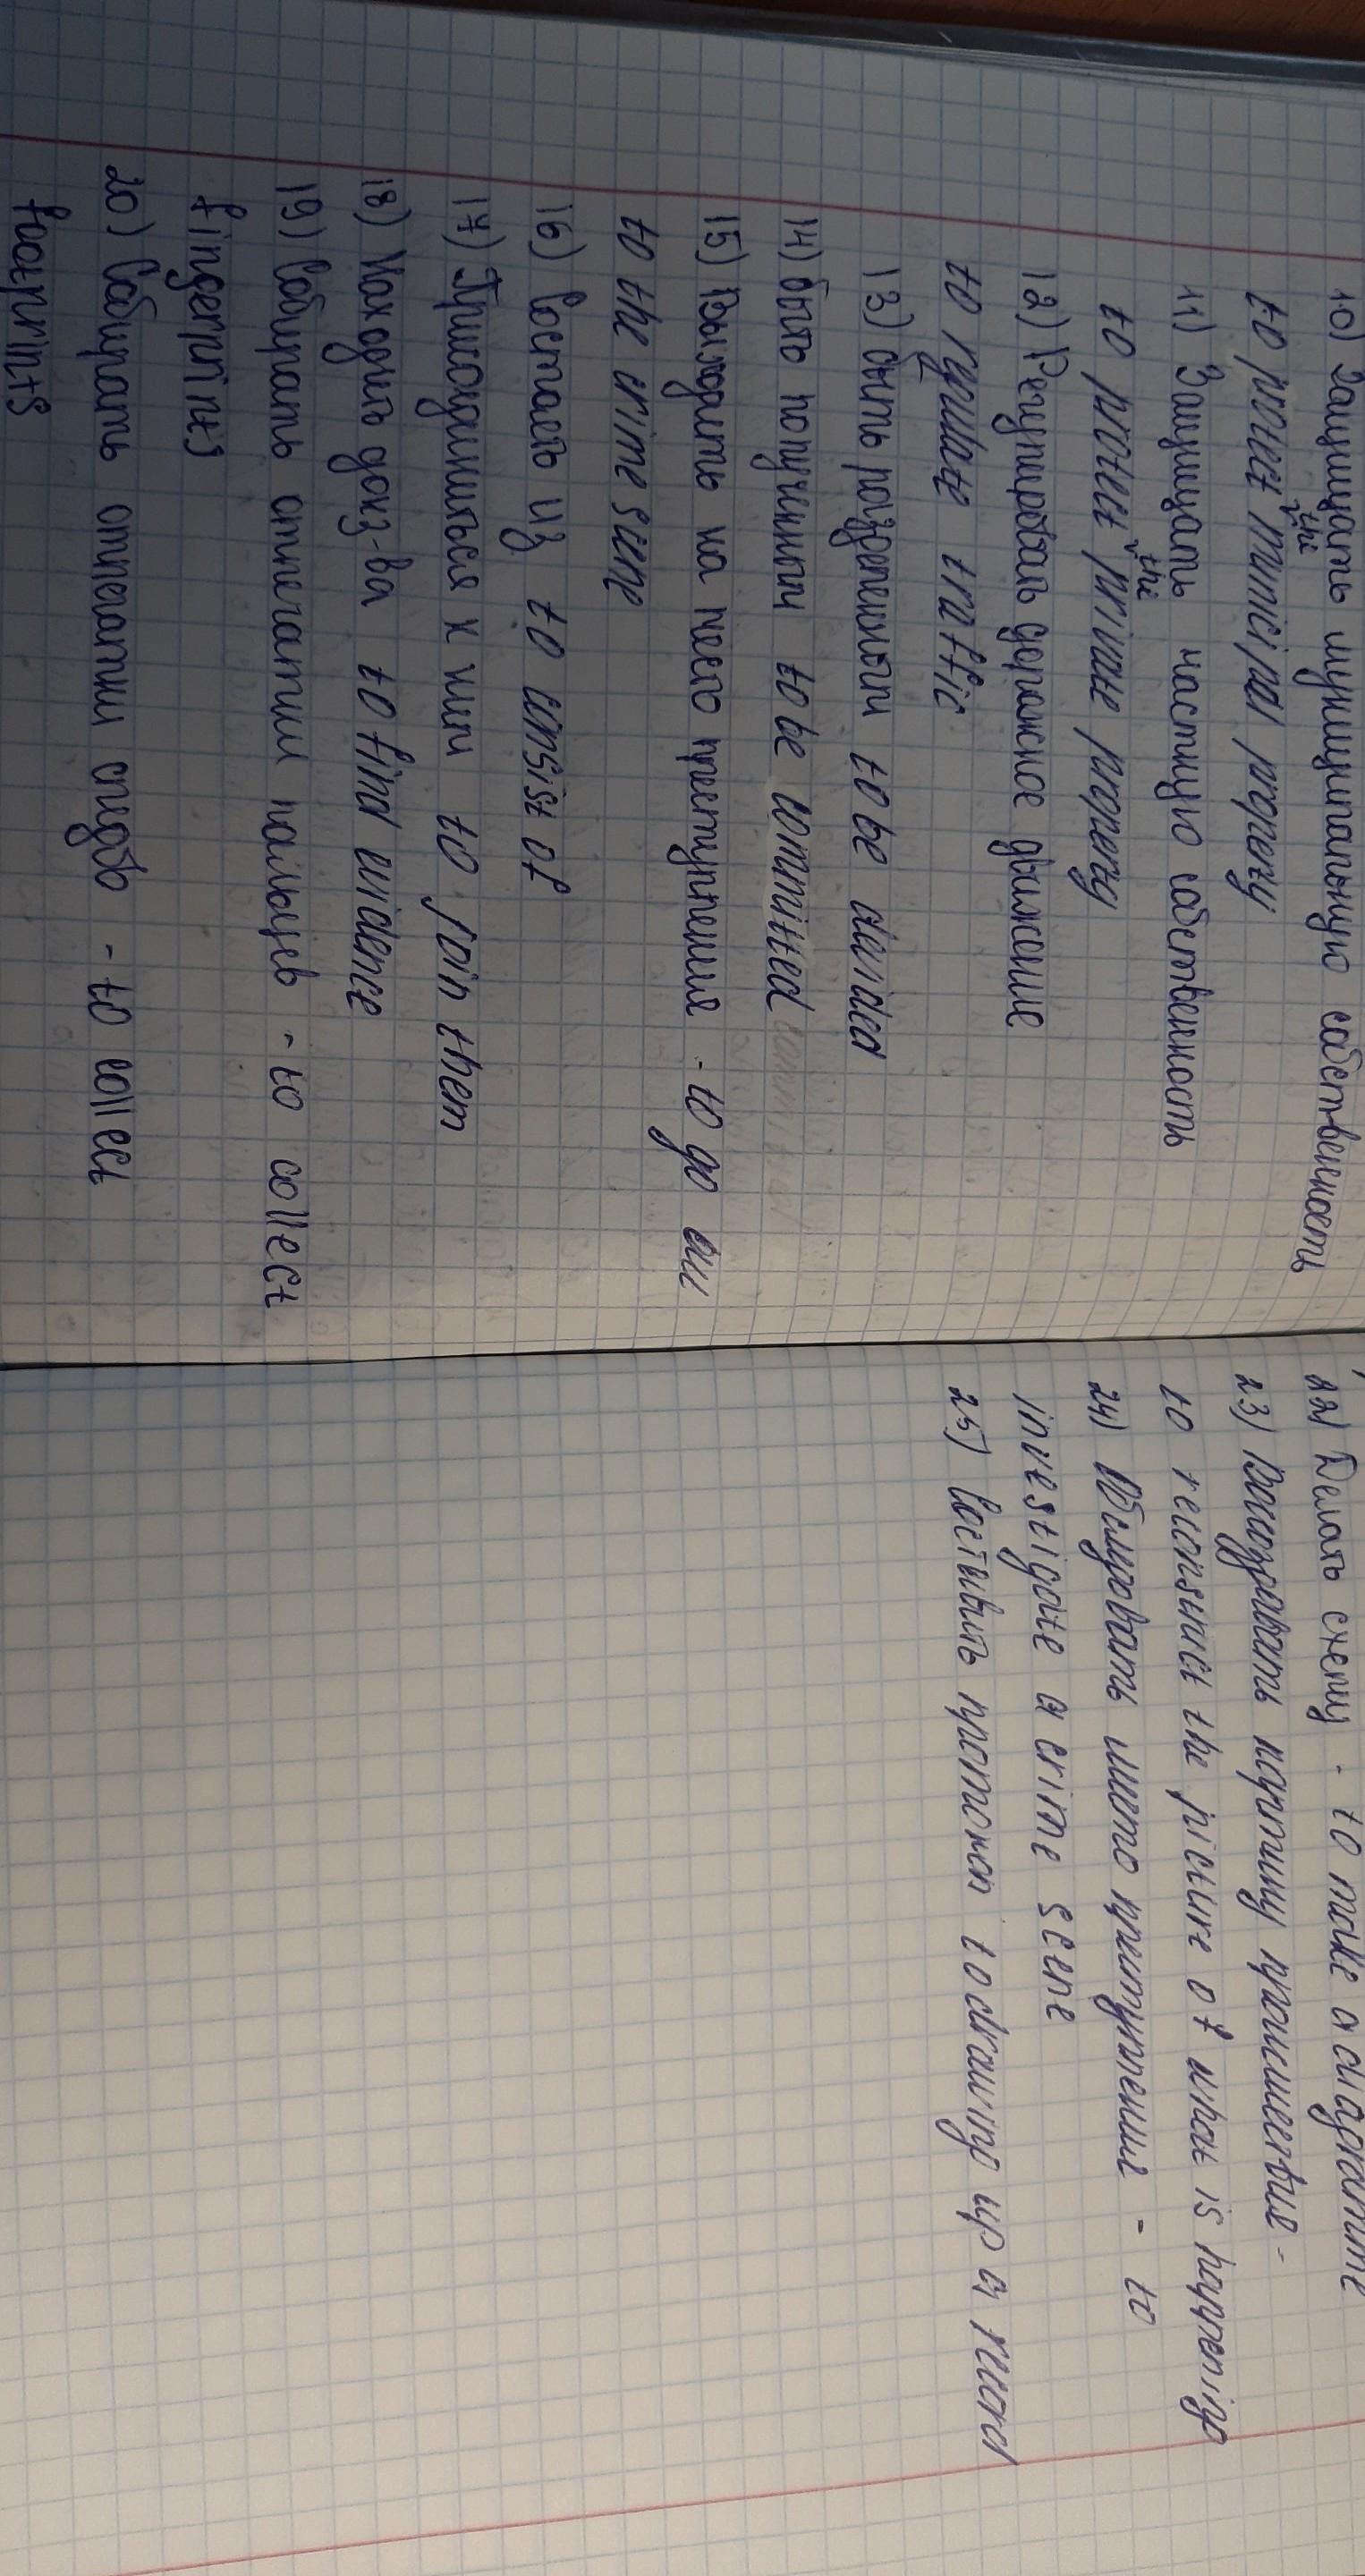 10) Защищать муниципальную собственность
to protect the municipal property
11) Защищать частную собственность
to protect the private property
12) Регулировать дорожное движение
to regulate traffic
13) быть разделенным to be devided
14) быть полученным to be committed
15) Выходить на место преступления - to go out
to the crime scene
16) Состоять из to consist of
17) Присоединиться к ним to join them
18) Находить док-ва to find evidence
19) Собирать отпечатки пальцев - to collect
fingerprints
20) Собирать отпечатки следов - to collect
footprints
22) Делать схему - to make a diagramme
23) Воссоздавать картину происшествие -
to reconstruct the picture of what is happening
24) Обследовать место преступление - to
investigate a crime scene
25) Составить протокол to drawing up a record